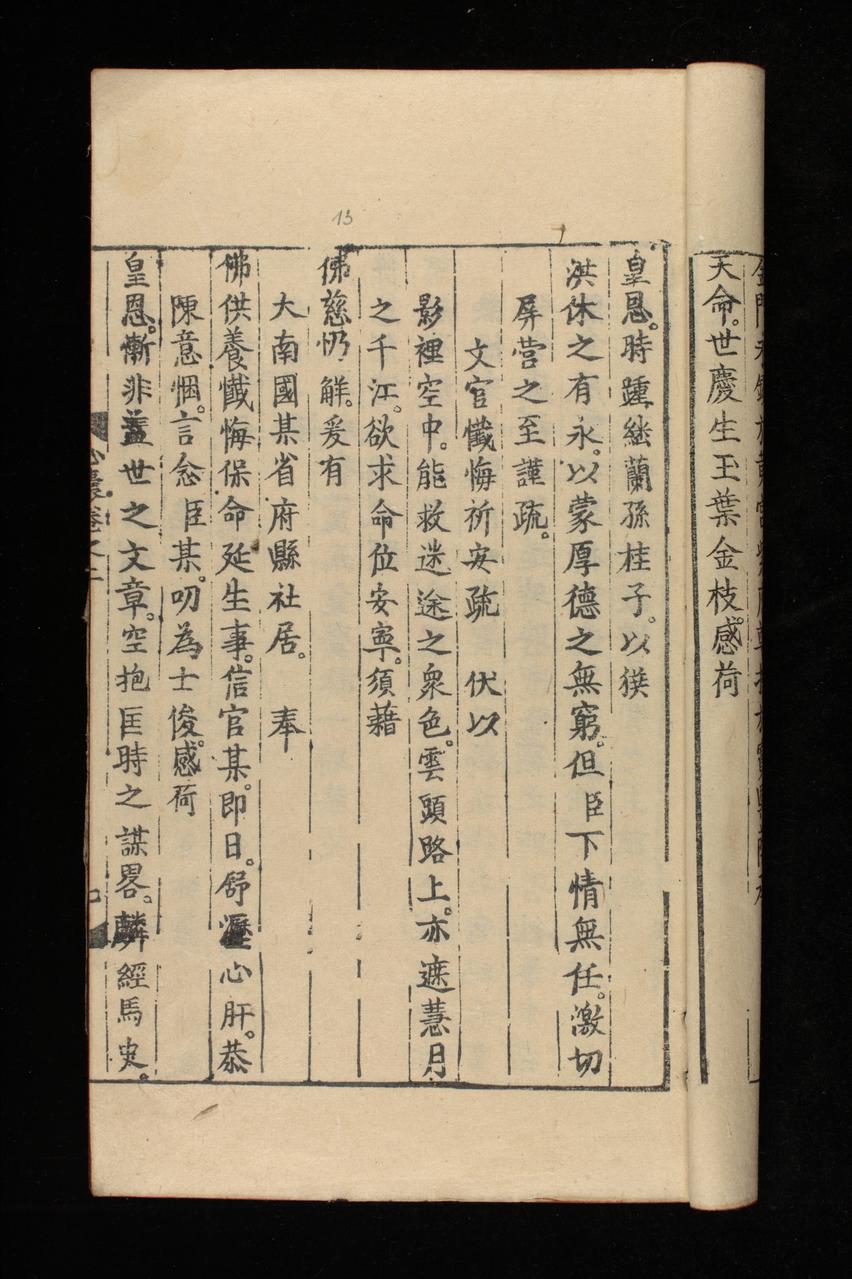 天命。世慶生玉葉金枝。感荷
皇恩。時踵継蘭孫桂子。以
洪休之有永。以蒙厚德之無窮。但臣下情無任。激切
屏营之至謹疏。
文官懺悔祈安疏 伏以
影裡空中。能救迷途之衆色。雲頭路上。亦遮慧月
之千江。欲求命位安寧。須藉
佛慈㤼觧。爰有
大南國某省府縣社居。 奉
佛供養懺悔保命延生事。信官某。即日。舒瀝心肝。恭
陳意悃。言念臣某。叨為士俊。感荷
皇恩。慚非蓋世之文章。空抱匡時之謀畧。麟經馬史。
13